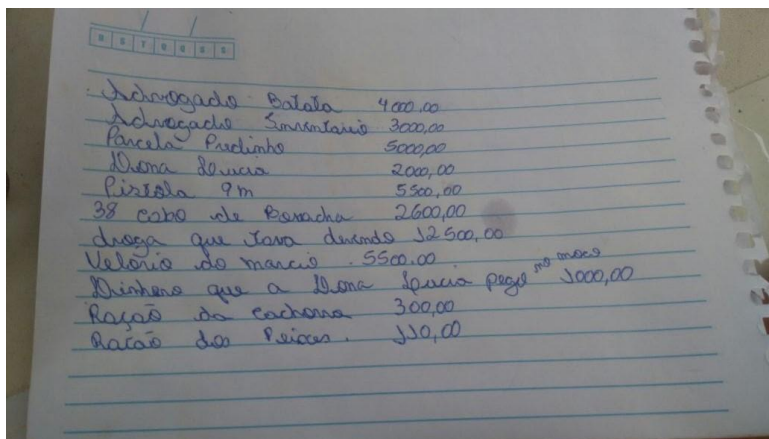 D S T Q Q S S
Advogado Batata 4000.00
Advogado Inventario 3000,00
Parcela Predinho 5000,00
Dona Lucia 2000,00
Pistola 9m 5500,00
38 cabo de Borracha 2600,00
droga que tava devendo 12500,00
Velório do marcio . 5500.00
Dinheiro que a Dona Lucia pego no moco 1000,00
Ração da cachorra 300,00
Racão dos Peixes . 110,00